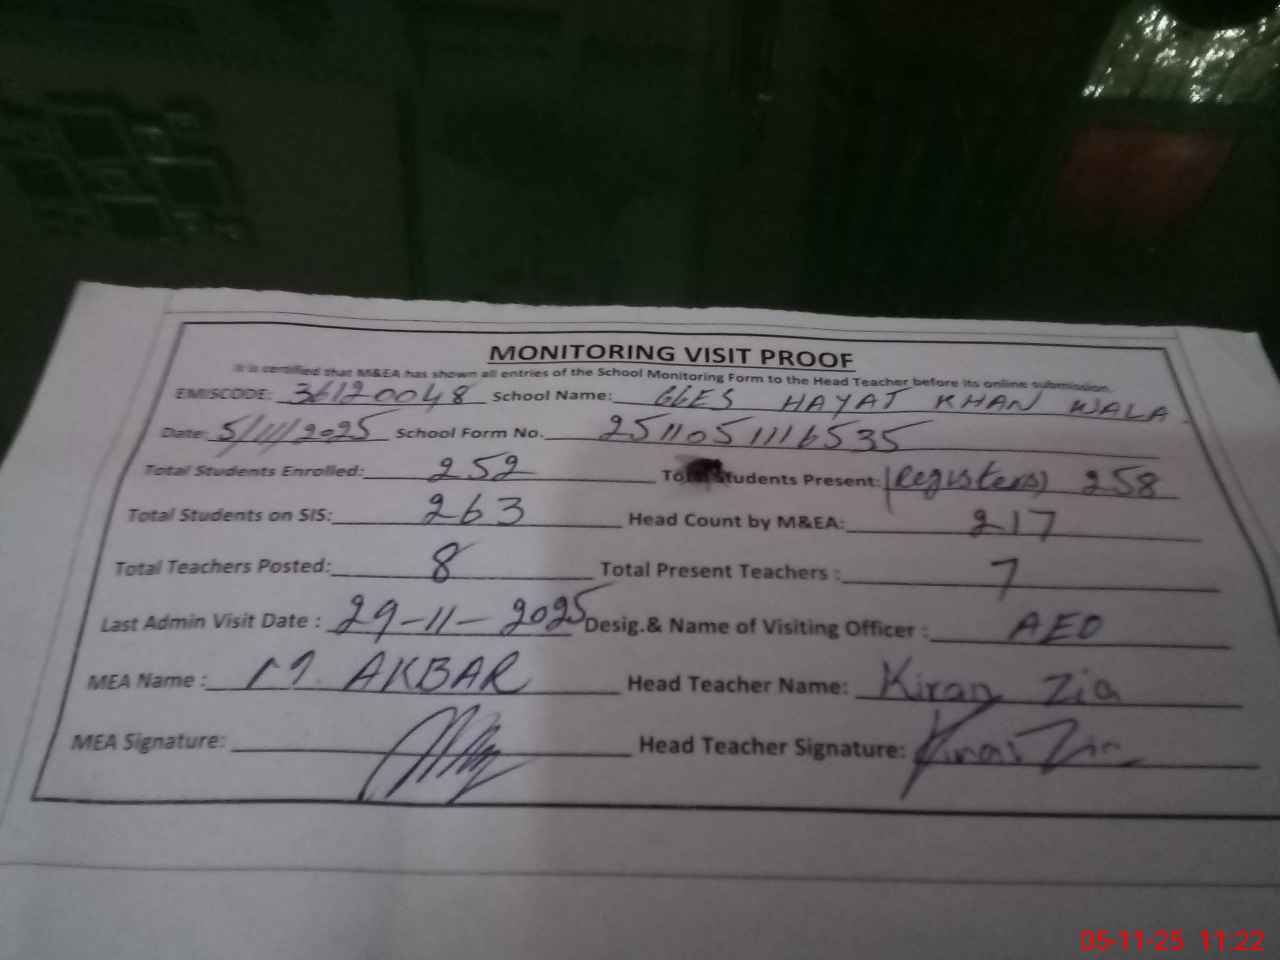 MONITORING VISIT PROOF
It is certified that M&EA has shown all entries of the School Monitoring Form to the Head Teacher before its online submission.
EMISCODE: 36120048 School Name: GGES HAYAT KHAN WALA
Date: 5/11/2025 School Form No. 2511051116535
Total Students Enrolled: 252 Total Students Present: (Registers) 258
Total Students on SIS: 263 Head Count by M&EA: 217
Total Teachers Posted: 8 Total Present Teachers : 7
Last Admin Visit Date : 29-11-2025 Desig.& Name of Visiting Officer : AEO
MEA Name : M. AKBAR Head Teacher Name: Kiran Zia
MEA Signature: Head Teacher Signature: Kiran Zia
05-11-25 11:22